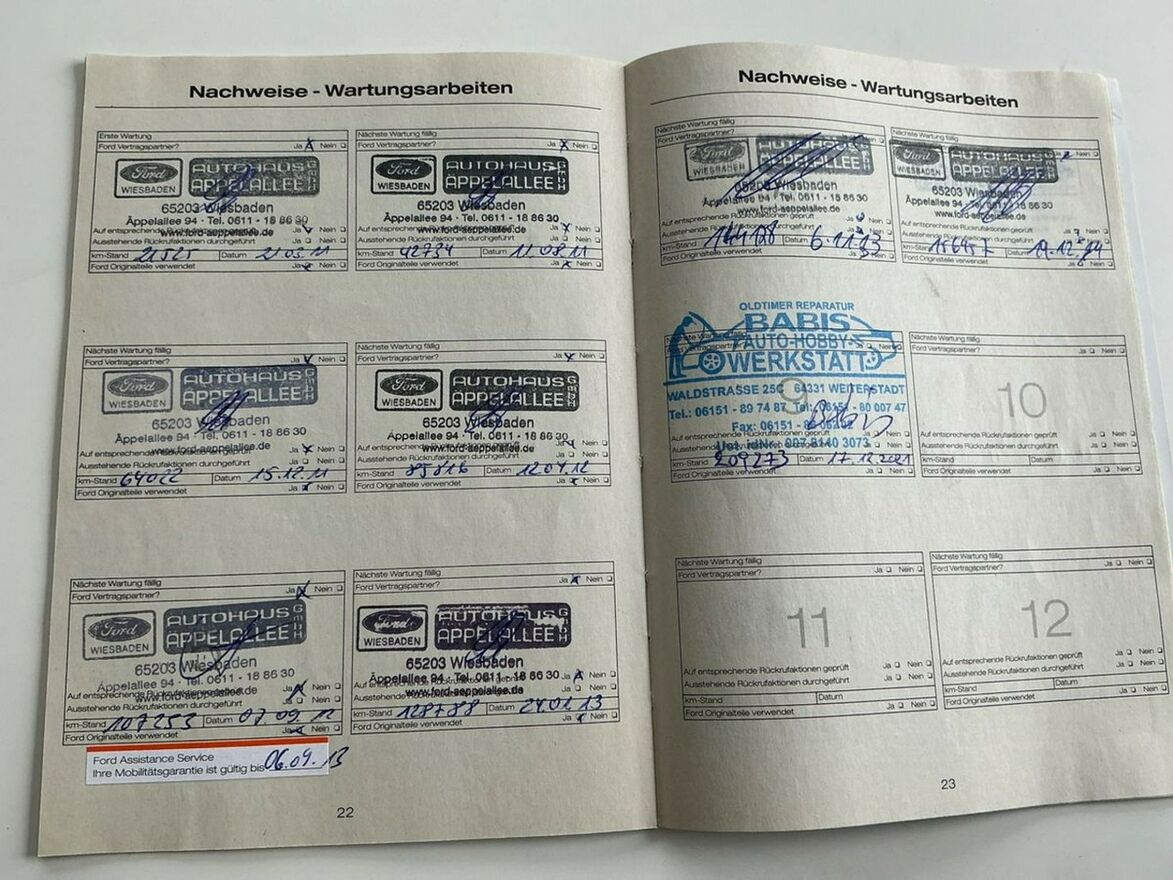 Nachweise - Wartungsarbeiten
Erste Wartung
Ford Vertragspartner? Ja Nein
Ford
WIESBADEN
AUTOHAUS
ÄPPELALLEE
GmbH
65203 Wiesbaden
Äppelallee 94 · Tel. 0611 - 18 86 30
www.ford-aeppelallee.de
Auf entsprechende Rückrufaktionen geprüft Ja Nein
Ausstehende Rückrufaktionen durchgeführt Ja Nein
km-Stand 21525 Datum 21.03.11
Ford Originalteile verwendet Ja Nein
Nächste Wartung fällig
Ford Vertragspartner? Ja Nein
Ford
WIESBADEN
AUTOHAUS
ÄPPELALLEE
GmbH
65203 Wiesbaden
Äppelallee 94 · Tel. 0611 - 18 86 30
www.ford-aeppelallee.de
Auf entsprechende Ja Nein
Ausstehende Rückrufaktionen durchgeführt Ja Nein
km-Stand 42734 Datum 11.08.11
Ford Originalteile verwendet Ja Nein
Nächste Wartung fällig
Ford Vertragspartner? Ja Nein
Ford
WIESBADEN
AUTOHAUS
ÄPPELALLEE
GmbH
65203 Wiesbaden
Äppelallee 94 · Tel. 0611 - 18 86 30
www.ford-aeppelallee.de
Ausstehende Rückrufaktionen durchgeführt Ja Nein
km-Stand 64022 Datum 15.12.11
Ford Originalteile verwendet Ja Nein
Nächste Wartung fällig
Ford Vertragspartner? Ja Nein
Ford
WIESBADEN
AUTOHAUS
ÄPPELALLEE
GmbH
65203 Wiesbaden
Äppelallee 94 · Tel. 0611 - 18 86 30
www.ford-aeppelallee.de
Ausstehende Rückrufaktionen durchgeführt Ja Nein
km-Stand 85816 Datum 12.04.12
Ford Originalteile verwendet Ja Nein
Nächste Wartung fällig
Ford Vertragspartner? Ja Nein
Ford
WIESBADEN
AUTOHAUS
ÄPPELALLEE
GmbH
65203 Wiesbaden
Äppelallee 94 · Tel. 0611 - 18 86 30
www.ford-aeppelallee.de
Auf entsprechende Ja Nein
Ausstehende Rückrufaktionen durchgeführt Ja Nein
km-Stand 107253 Datum 07.09.12
Ford Originalteile verwendet Ja Nein
Ford Assistance Service
Ihre Mobilitätsgarantie ist gültig bis 06.09.13
Nächste Wartung fällig
Ford Vertragspartner? Ja Nein
Ford
WIESBADEN
AUTOHAUS
ÄPPELALLEE
GmbH
65203 Wiesbaden
Äppelallee 94 · Tel. 0611 - 18 86 30
www.ford-aeppelallee.de
Ja Nein
Ausstehende Ja Nein
km-Stand 128788 Datum 24.01.13
Ford Originalteile verwendet Ja Nein
22
Nachweise - Wartungsarbeiten
Nächste Wartung fällig
Ford Vertragspartner? Ja Nein
Ford
WIESBADEN
AUTOHAUS
ÄPPELALLEE
65203 Wiesbaden
Äppelallee 94 · Tel. 0611 - 18 86 30
www.ford-aeppelallee.de
Ausstehende Rückrufaktionen durchgeführt Ja Nein
km-Stand 144128 Datum 6.11.13
Ford Originalteile verwendet Ja Nein
Nächste Wartung fällig
Ford
WIESBADEN
AUTOHAUS
ÄPPELALLEE
GmbH
65203 Wiesbaden
Äppelallee 94 · Tel. 0611 - 18 86 30
www.ford-aeppelallee.de
Ausstehende Rückrufaktionen durchgeführt Ja Nein
km-Stand Datum
Ford Originalteile verwendet Ja Nein
OLDTIMER REPARATUR
BABIS
AUTO-HOBBY-
WERKSTATT
9
WALDSTRASSE 25C 64331 WEITERSTADT
Tel.: 06151 - 89 74 87 Tel.: 06151 - 80 007 47
Fax: 06151 -
Ust. IdNr. 007 8140 3073
km-Stand 209273 Datum 17.12.2021
Ford Originalteile verwendet Ja Nein
Nächste Wartung fällig
Ford Vertragspartner? Ja Nein
10
Auf entsprechende Rückrufaktionen geprüft Ja Nein
Ausstehende Rückrufaktionen durchgeführt Ja Nein
km-Stand Datum
Ford Originalteile verwendet Ja Nein
Nächste Wartung fällig
Ford Vertragspartner? Ja Nein
11
Auf entsprechende Rückrufaktionen geprüft Ja Nein
Ausstehende Rückrufaktionen durchgeführt Ja Nein
km-Stand Datum
Ford Originalteile verwendet Ja Nein
Nächste Wartung fällig
Ford Vertragspartner? Ja Nein
12
Auf entsprechende Rückrufaktionen geprüft Ja Nein
Ausstehende Rückrufaktionen durchgeführt Ja Nein
km-Stand Datum
Ford Originalteile verwendet Ja Nein
23